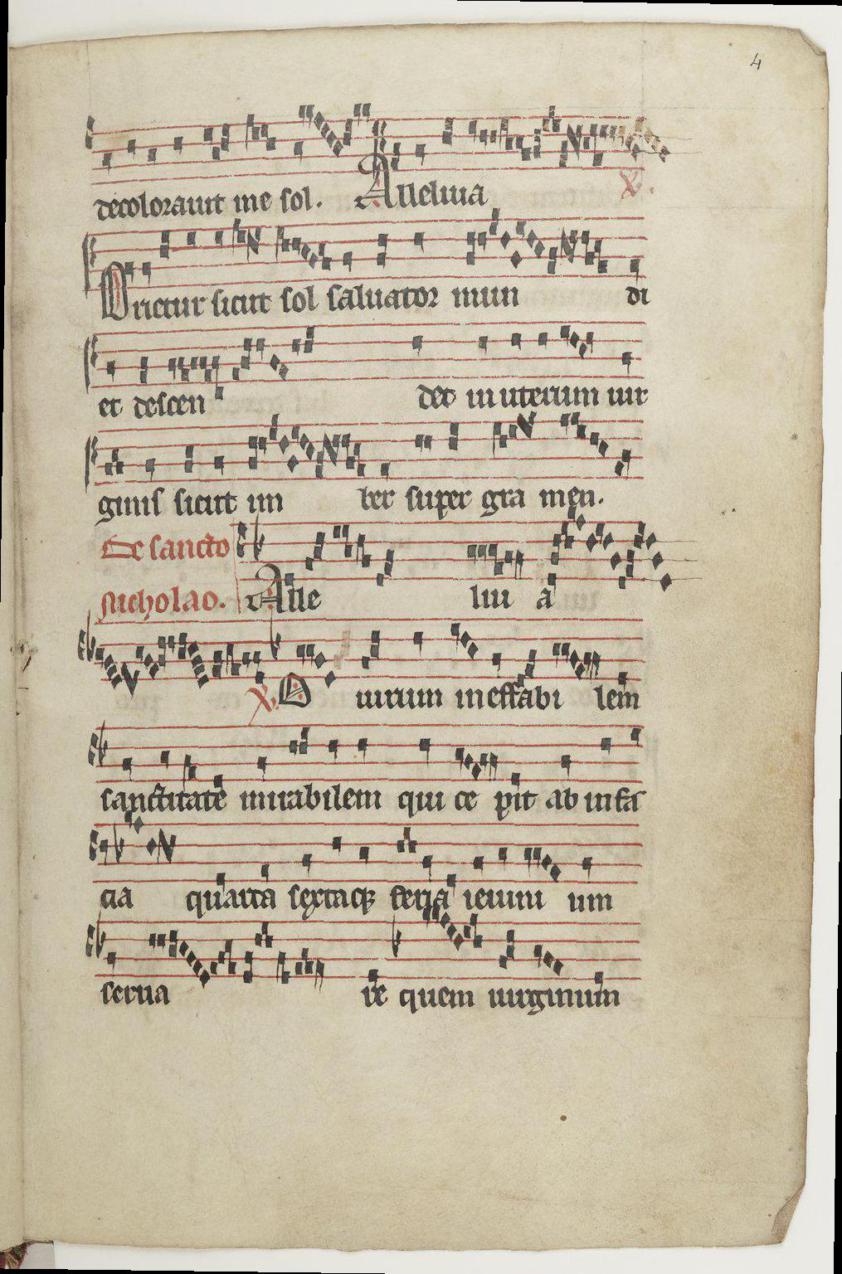 4
decolorauit me sol. Alleluia ℣.
Orietur sicut sol saluator mun di
et descen det in uterum uir
ginis sicut im ber super gra men.
De sancto
nicholao. Alle lui a
℣. O uirum ineffabi lem
sanctitate mirabilem qui ce pit ab infā
cia quarta sextaqꝫ feria ieiuni um
serua re quem uirginum